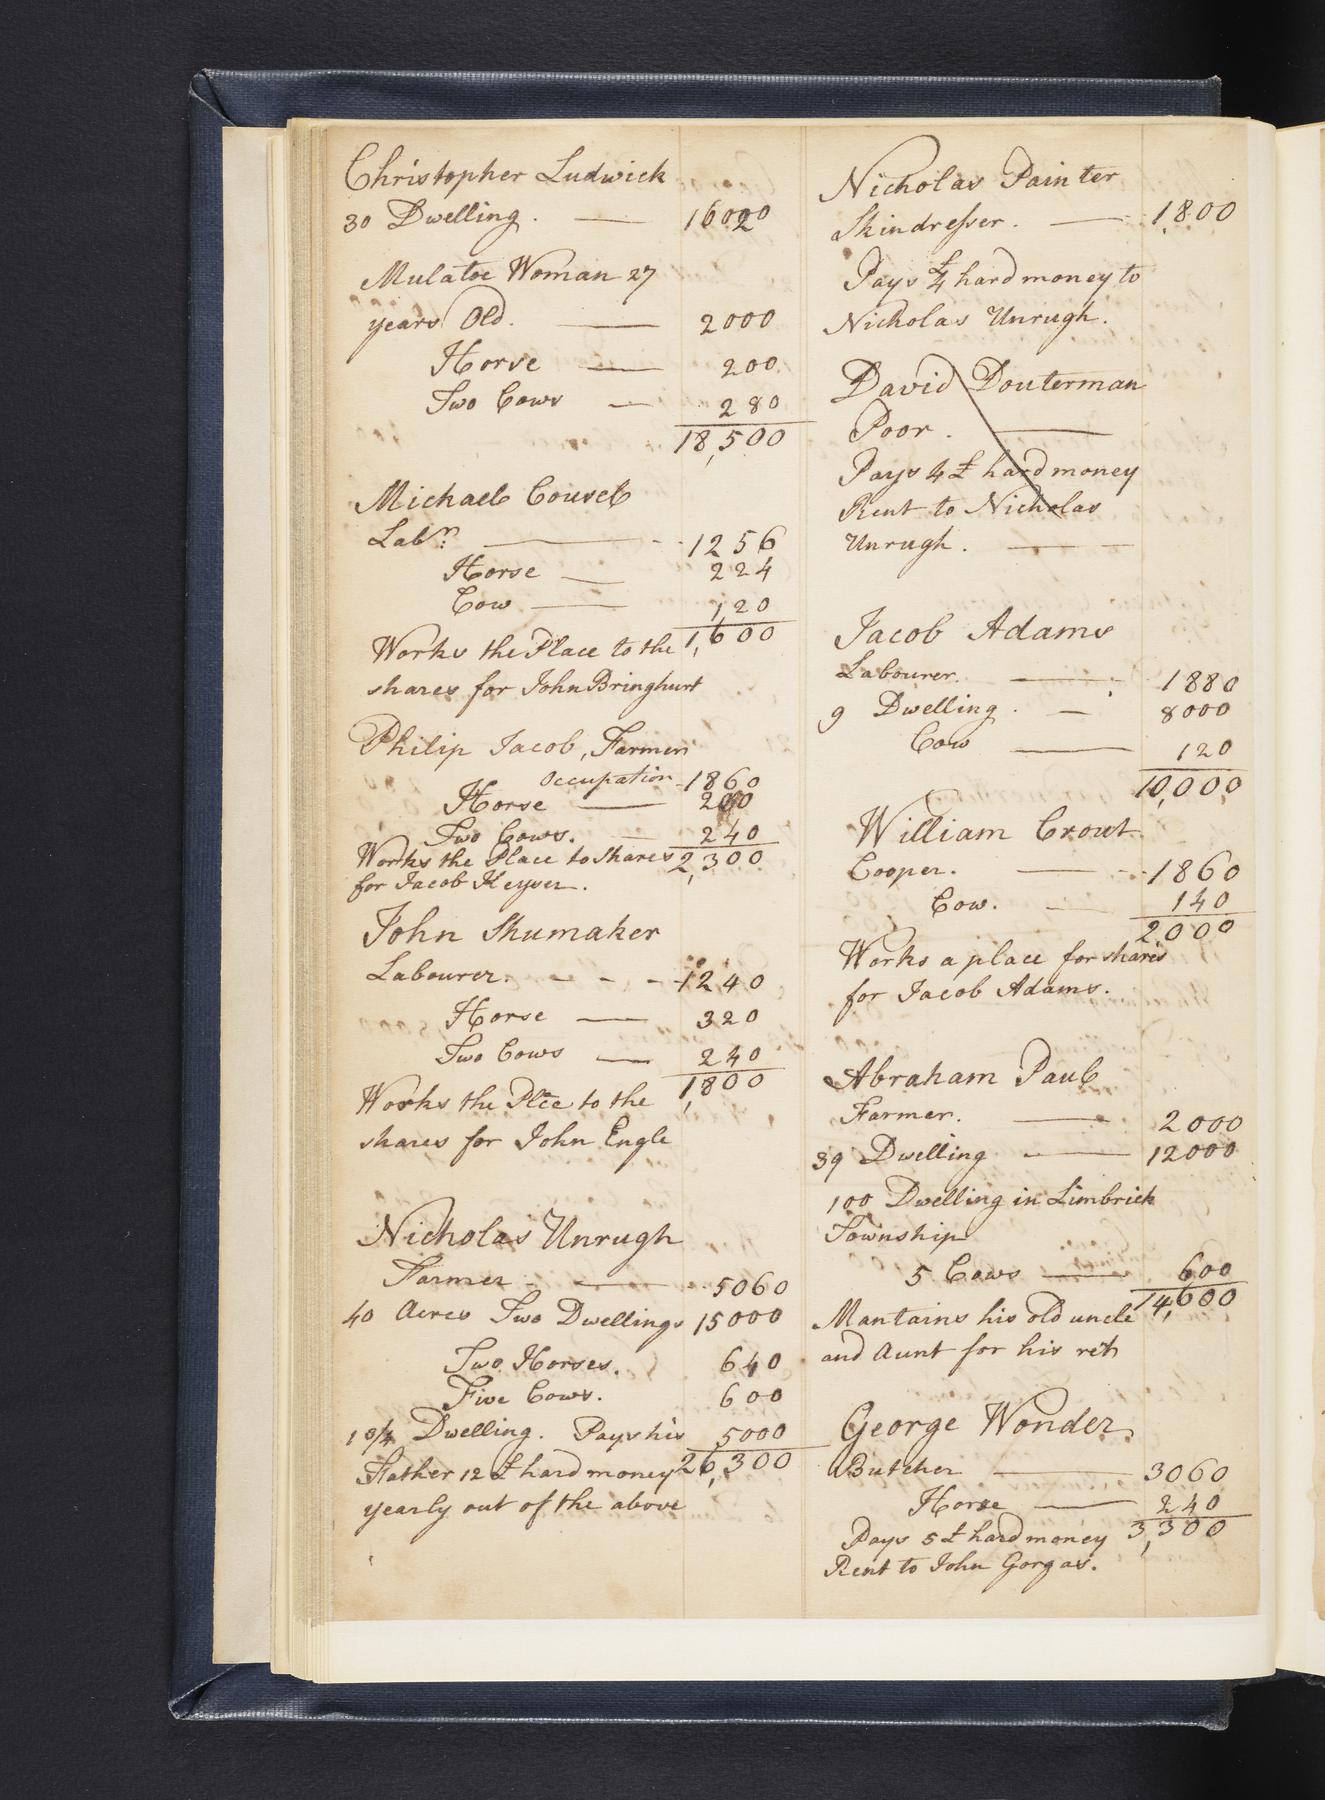 Christopher Ludwick
30 Dwelling. — 16020
Mulatoe Woman 27
years Old. — 2000
Horse — 200
Two Cows — 280
18,500
Michael Couset
Labr. — 1256
Horse — 224
Cow — 120
1,600
Works the Place to the
shares for John Bringhurt
Philip Jacob, Farmer
Occupation 1860
Horse — 200
Two Cows. — 240
Works the Place to Shares 2,300
for Jacob Keyser.
John Shumaker
Labourer. - - - 1240
Horse — 320
Two Cows — 240
1,800
Works the Plce to the
shares for John Engle
Nicholas Unrugh
Farmer - — 5060
40 Acres Two Dwellings 15000
Two Horses. 640
Five Cows. 600
1 3/4 Dwelling. Pays his 5000
Father 12 £ hard money 26,300
yearly out of the above
Nicholas Painter
Skindresser. — 1,800
Pays £4 hard money to
Nicholas Unrugh.
David Douterman
Poor. —
Pays 4 £ hard money
Rent to Nicholas
Unrugh. — —
Jacob Adams
Labourer. — 1880
9 Dwelling. — 8000
Cow — 120
10,000
William Crout
Cooper. — 1860
Cow. — 140
2000
Works a place for shares
for Jacob Adams.
Abraham Paul
Farmer. — 2000
39 Dwelling — 12000
100 Dwelling in Limbrick
Township
5 Cows — 600
14,600
Mantains his old uncle
and Aunt for his
George Wonder.
Butcher — 3060
Horse — 240
3,300
Pays 5 £ hard money
Rent to John Gorgas.